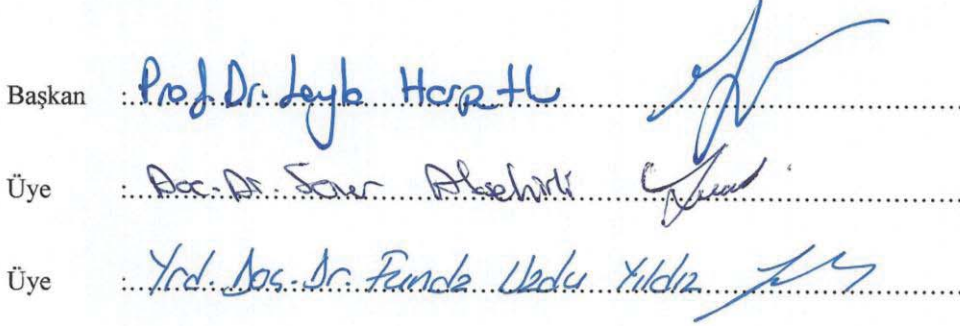 Başkan : Prof. Dr. Leyla Harputlu
Üye : Doç. Dr. Soner Akşehirli
Üye : Yrd. Doç. Dr. Funda Uzdu Yıldız